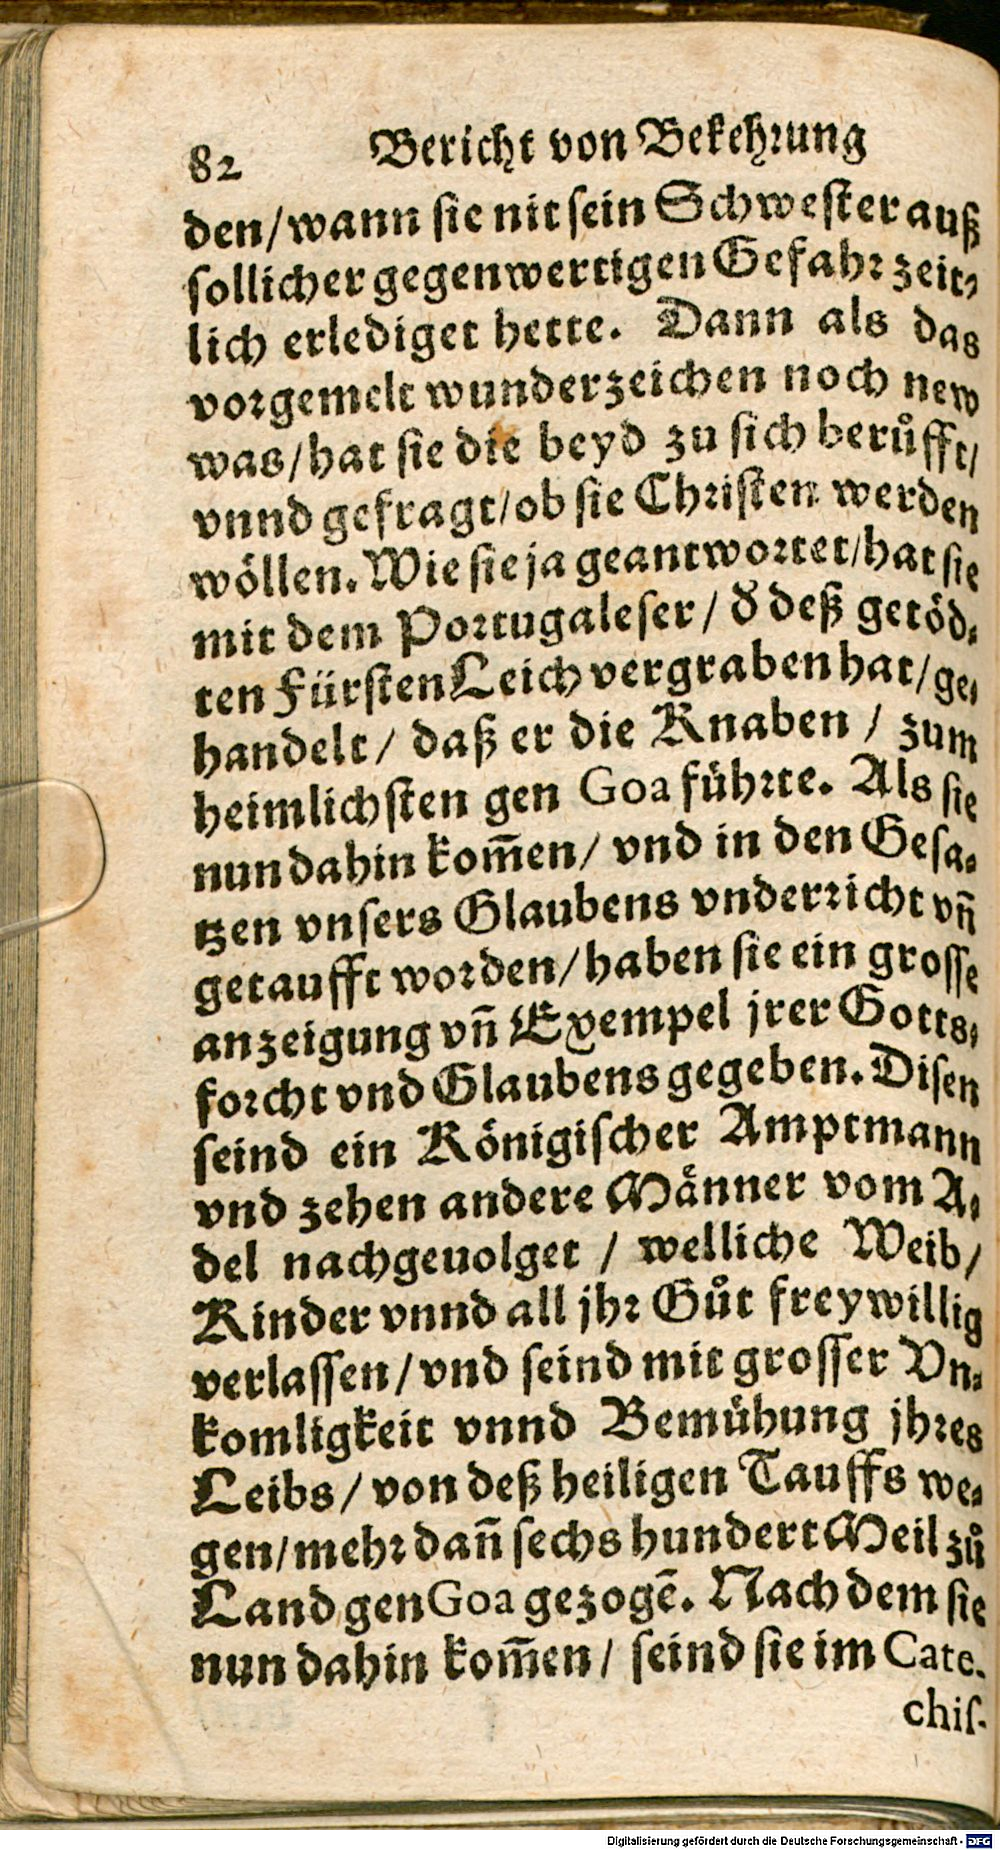 82 Bericht von Bekehrung
den/wann sie nit sein Schwester auß
sollicher gegenwertigen Gefahr zeit-
lich erlediget hette. Dann als das
vorgemelt wunderzeichen noch new
was/hat sie die beyd zu sich berůfft/
vnnd gefragt/ob sie Christen werden
wöllen. Wie sie ja geantwortet/hat sie
mit dem Portugaleser / ð deß getöd-
ten Fürsten Leich vergraben hat/ge-
handelt/ daß er die Knaben / zum
heimlichsten gen Goa führte. Als sie
nun dahin kom̃en/ vnd in den Gesa-
tzen vnsers Glaubens vnderricht vñ
getaufft worden/haben sie ein grosse
anzeigung vñ Exempel jrer Gotts-
forcht vnd Glaubens gegeben. Disen
seind ein Königischer Amptmann
vnd zehen andere Männer vom A-
del nachgeuolget / welliche Weib/
Kinder vnnd all jhr Gůt freywillig
verlassen/vnd seind mit grosser Vn-
komligkeit vnnd Bemühung jhres
Leibs/von deß heiligen Tauffs we-
gen/mehr dañ sechs hundert Meil zů
Land gen Goa gezogẽ. Nach dem sie
nun dahin kom̃en/ seind sie im Cate-
chis-
Digitalisierung gefördert durch die Deutsche Forschungsgemeinschaft - DFG